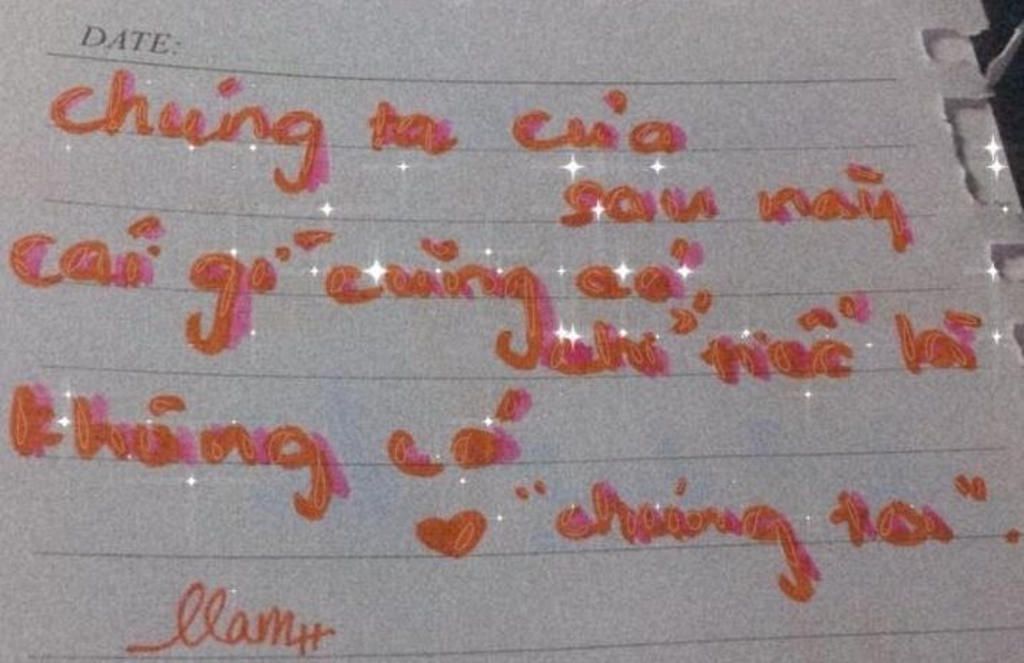 DATE:
chúng ta của
sau này
cái gì cũng có,
chỉ tiếc là
không có
"chúng ta".